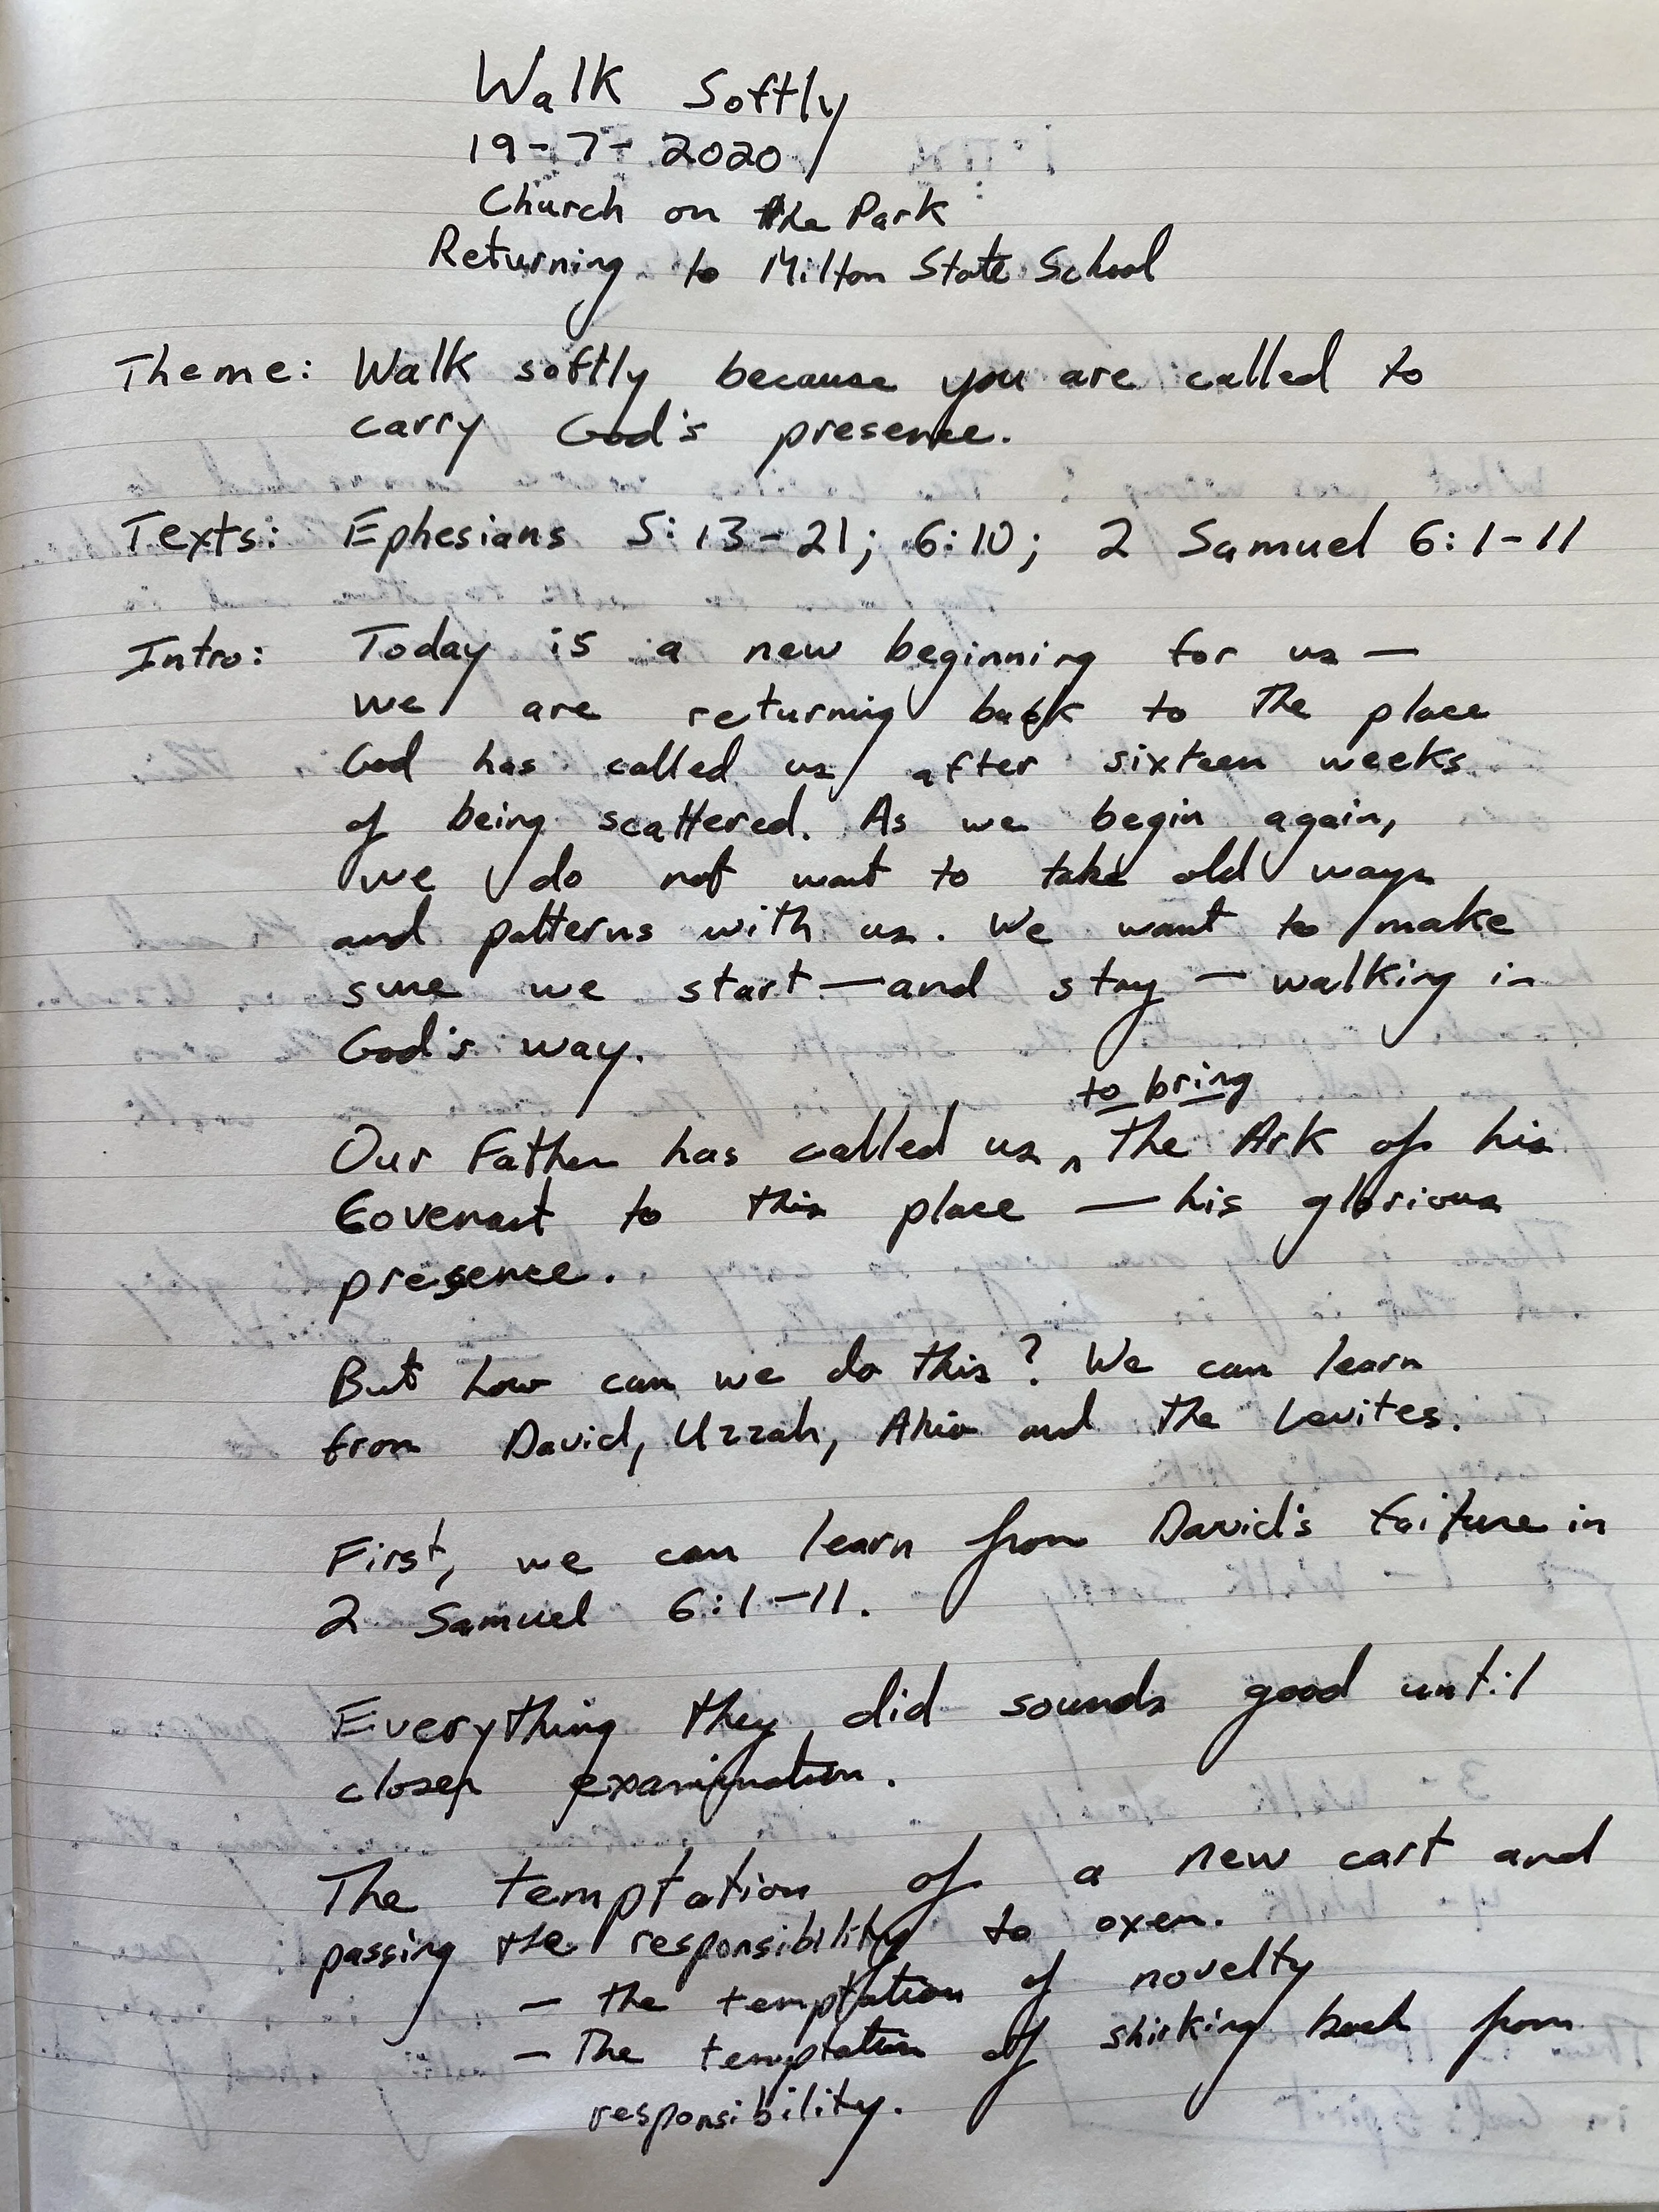 Walk Softly
19-7-2020
Church on the Park
Returning to Milton State School
Theme: Walk softly because you are called to
carry God's presence.
Texts: Ephesians 5:13-21; 6:10; 2 Samuel 6:1-11
Intro: Today is a new beginning for us —
we are returning back to the place
God has called us after sixteen weeks
of being scattered. As we begin again,
we do not want to take old ways
and patterns with us. We want to make
sure we start — and stay — walking in
God's way.
to bring
Our Father has called us ^ the Ark of his
Covenant to this place — his glorious
presence.
But how can we do this? We can learn
from David, Uzzah, Ahio and the Levites.
First, we can learn from David's failure in
2 Samuel 6:1-11.
Everything they did sounds good until
closer examination.
The temptation of a new cart and
passing the responsibility to oxen.
— the temptation of novelty
— The temptation of shirking back from
responsibility.